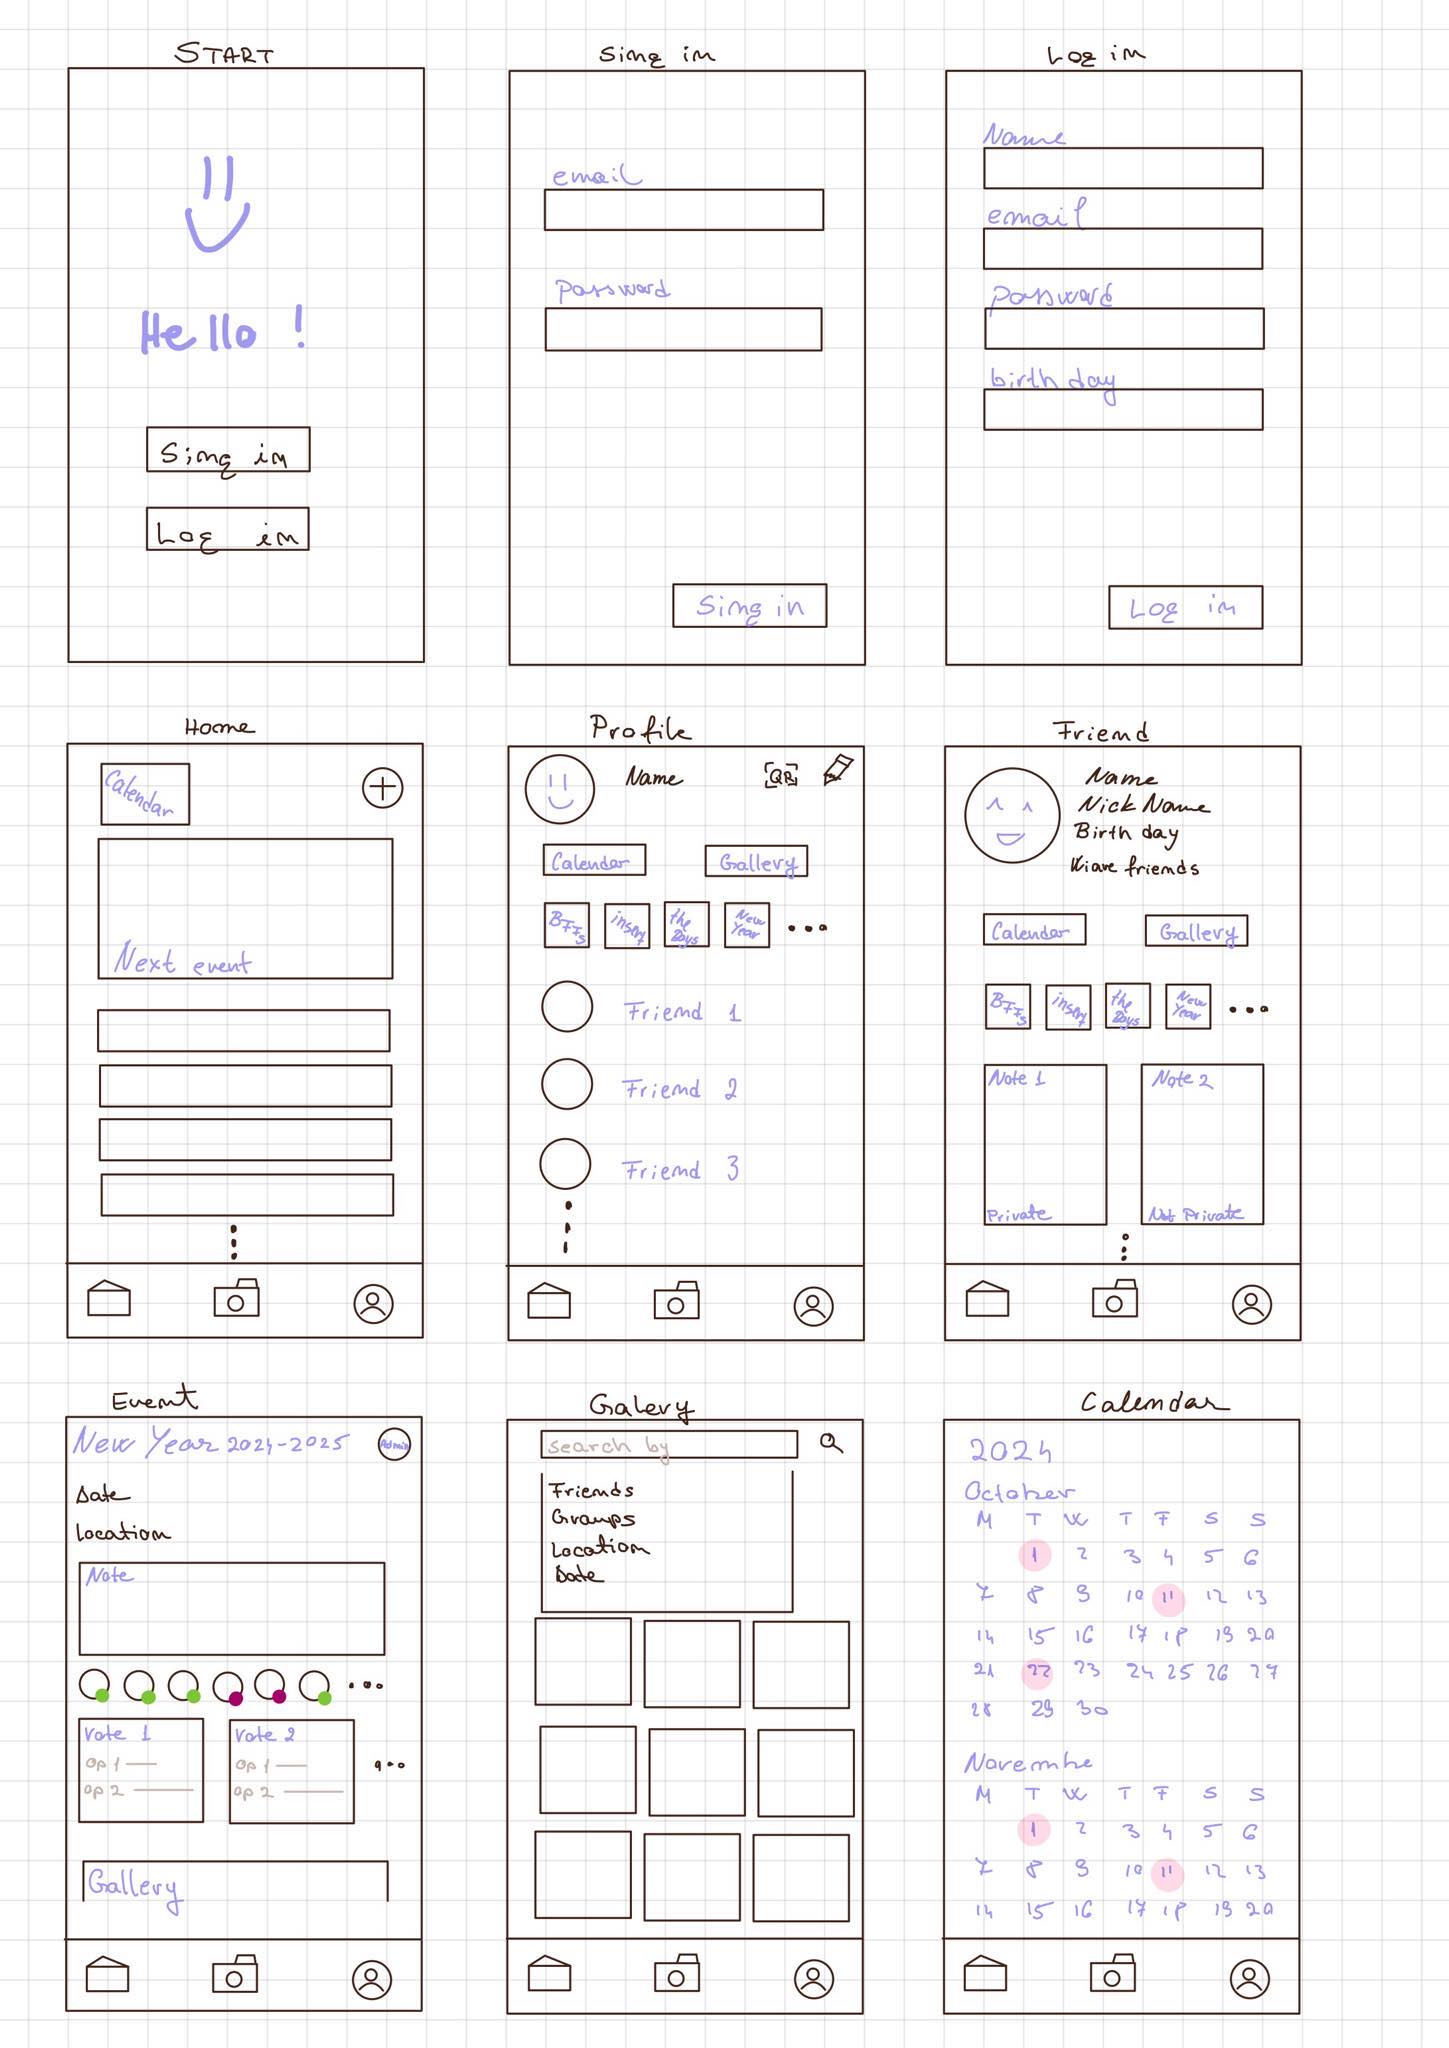 START
Sing in
Log in
Hello !
Sing in
Log in
email
password
Sing in
Name
email
password
birthday
Log in
Home
Profile
Friend
Calendar
Next event
Name
QR
Calendar
Gallery
BFFs
insert
the Boys
New Year
Friend 1
Friend 2
Friend 3
Name
Nick Name
Birthday
friends
Calendar
Gallery
BFFs
insert
the Boys
New Year
Note 1
Note 2
Private
Not Private
Event
Galery
Calendar
New Year 2024-2025
Admin
Date
Location
Note
Vote 1
op 1
op 2
Vote 2
op 1
op 2
Gallery
search by
Friends
Groups
Location
Date
2024
October
M T W T F S S
1 2 3 4 5 6
7 8 9 10 11 12 13
14 15 16 17 18 19 20
21 22 23 24 25 26 27
28 29 30
Novembe
M T W T F S S
1 2 3 4 5 6
7 8 9 10 11 12 13
14 15 16 17 18 19 20